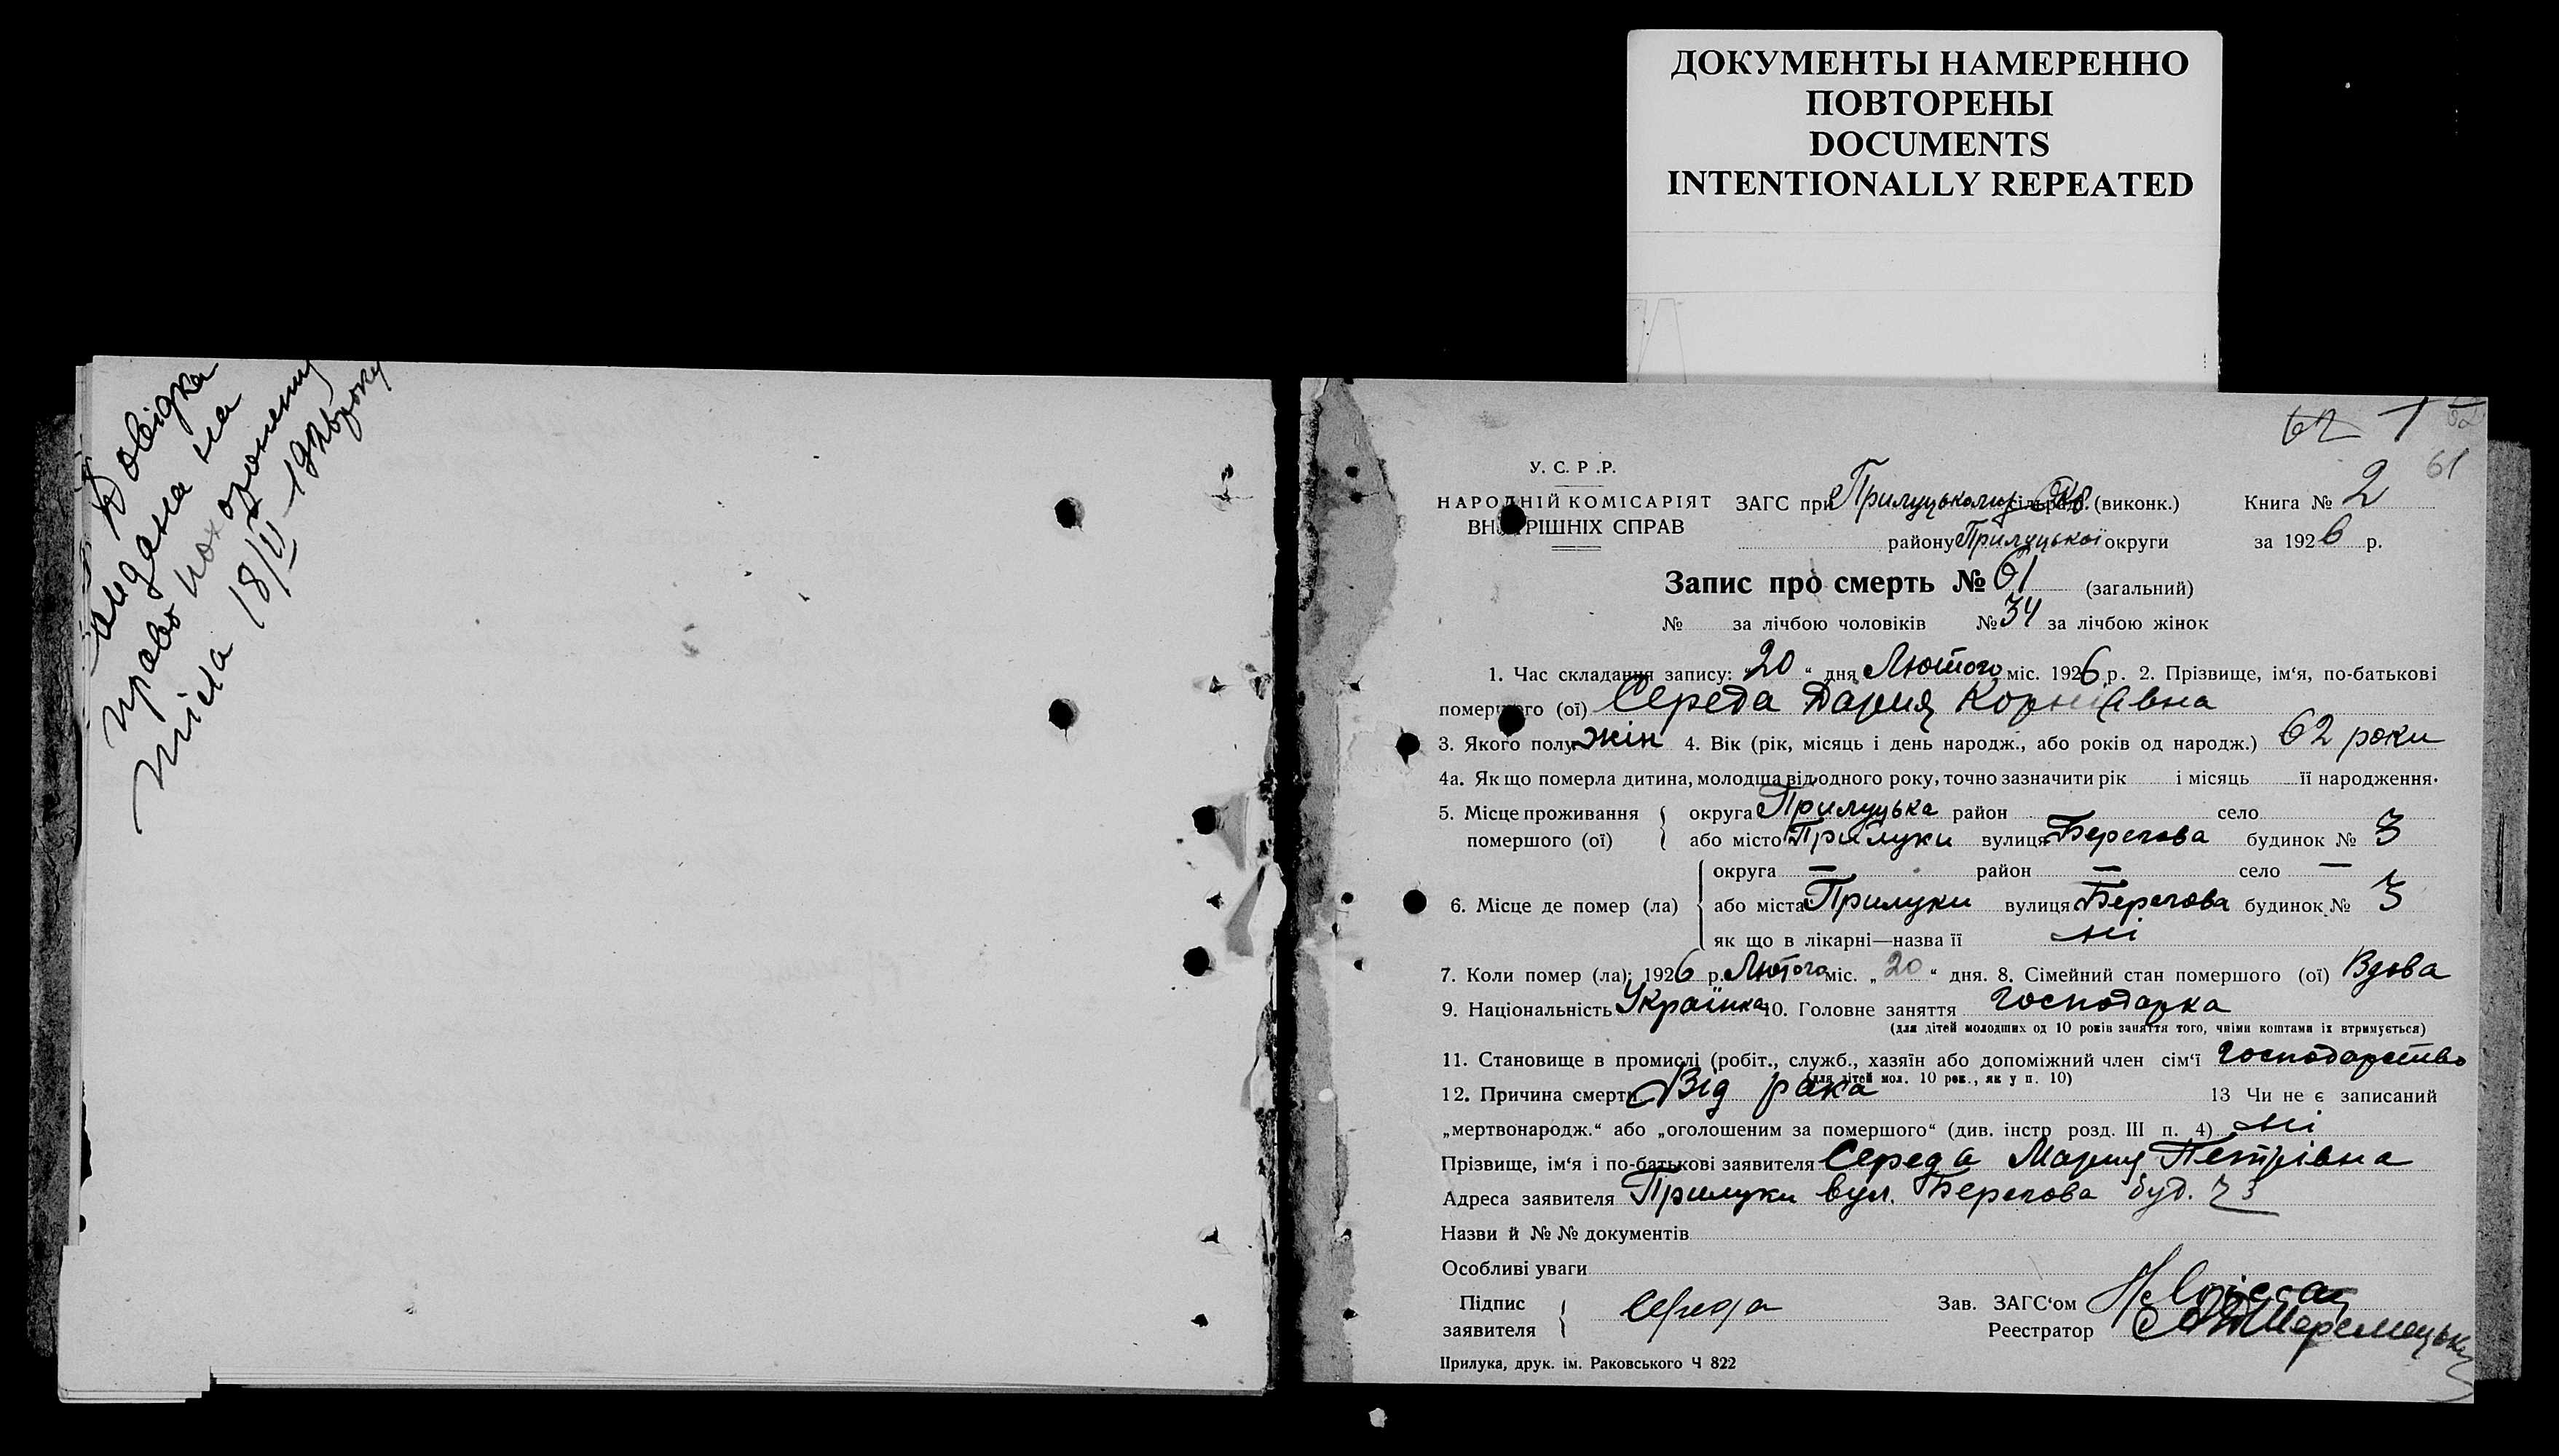 ДОКУМЕНТЫ НАМЕРЕННО
ПОВТОРЕНЫ
DOCUMENTS
INTENTIONALLY REPEATED
Довідка
видана на
право похоронення
тіла 18/II 1926 року
62 1
61
У. С. Р. Р.
НАРОДНІЙ КОМІСАРІЯТ
ВНУТРІШНІХ СПРАВ
ЗАГС при Прилуцькому сільраді (виконк.) Книга № 2
району Прилуцької округи за 1926 р.
Запис про смерть № 61 (загальний)
№ за лічбою чоловіків № 34 за лічбою жінок
1. Час складання запису: „20“ дня Лютого міс. 1926 р. 2. Прізвище, ім‘я, по-батькові
помершого (ої) Середа Дария Корніївна
3. Якого полу жін 4. Вік (рік, місяць і день народж., або років од народж.) 62 роки
4а. Як що померла дитина, молодша від одного року, точно зазначити рік і місяць її народження.
5. Місце проживання помершого (ої) { округа Прилуцька район село
або місто Прилуки вулиця Берегова будинок № 3
6. Місце де помер (ла) { округа — район — село —
або міста Прилуки вулиця Берегова будинок № 3
як що в лікарні—назва її ні
7. Коли помер (ла); 1926 р. Лютого міс. „20“ дня. 8. Сімейний стан помершого (ої) Вдова
9. Національність Українка 10. Головне заняття господарка
(для дітей молодших од 10 років заняття того, чиїми коштами їх втримується)
11. Становище в промислі (робіт., служб., хазяїн або допоміжний член сім‘ї господарство
(для дітей мол. 10 рок., як у п. 10)
12. Причина смерти Від рака 13 Чи не є записаний
„мертвонародж.“ або „оголошеним за помершого“ (див. інстр розд. III п. 4) ні
Прізвище, ім‘я і по-батькові заявителя Середа Мария Петрівна
Адреса заявителя Прилуки вул. Берегова буд. 3
Назви й № № документів
Особливі уваги
Підпис заявителя { Середа
Зав. ЗАГС‘ом
Реестратор
Прилука, друк. ім. Раковського Ч 822